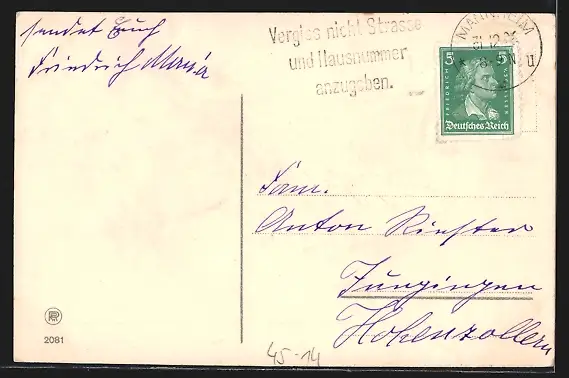 sendet Euch
Friedrich Maria
Vergiss nicht Strasse
und Hausnummer
anzugeben.
MANNHEIM
31.12.26
5 5
FRIEDRICH SCHILLER
Deutsches Reich
Fam.
Anton Riester
Jungingen
Hohenzollern
2081
45-14